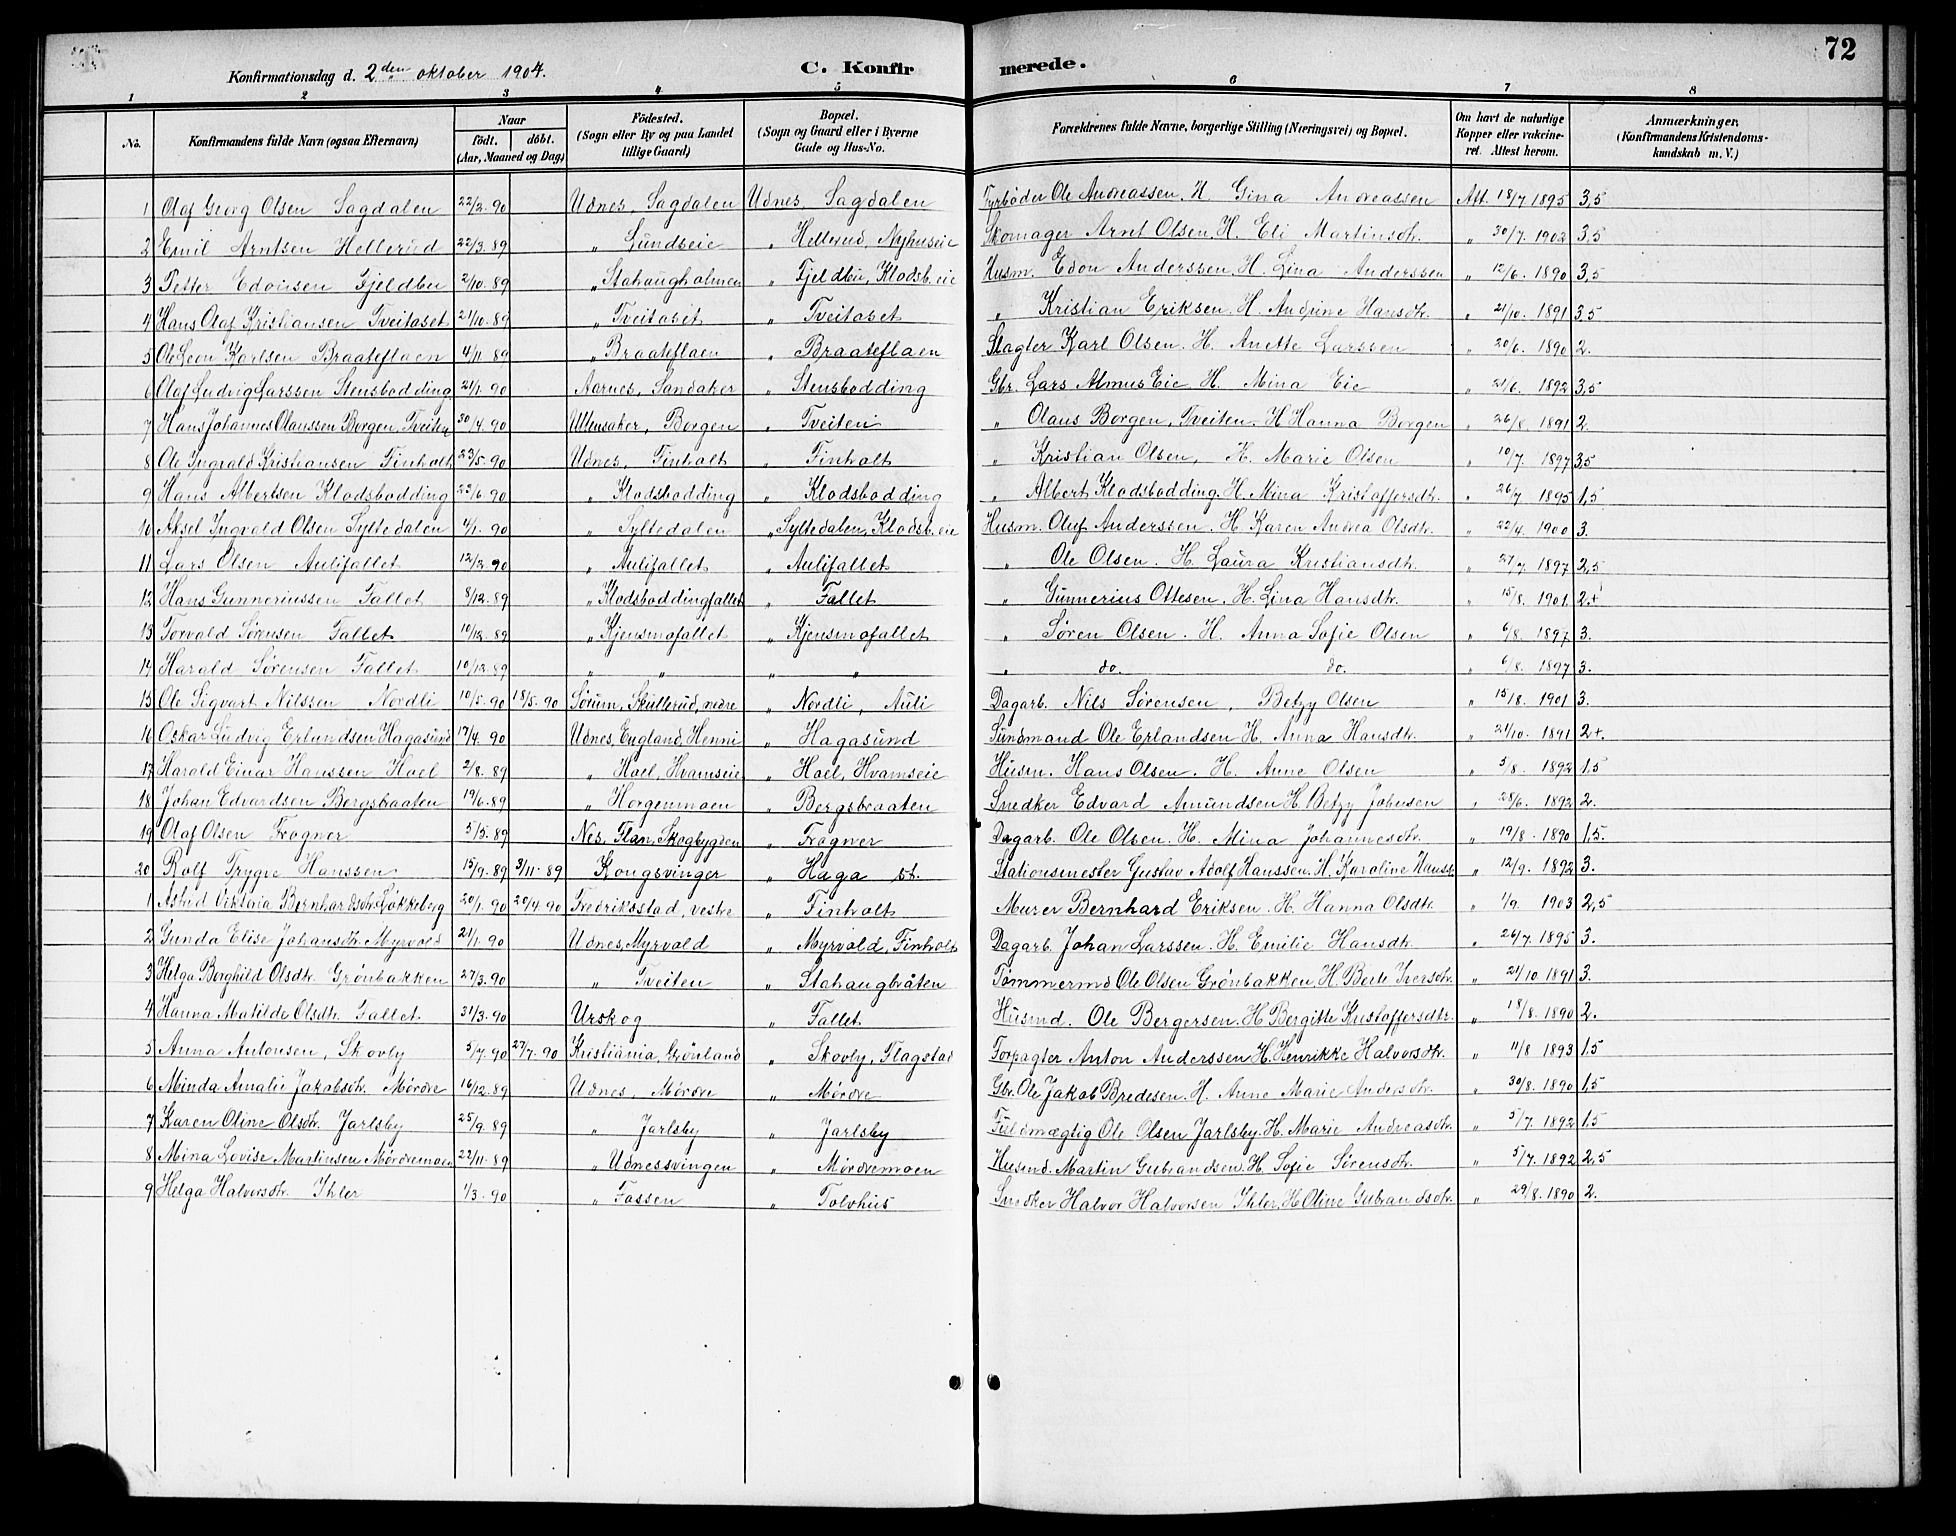 72
Konfirmationsdag d. 2den oktober 1904. C. Konfirmerede.
1 2 3 4 5 6 7 8
No. Konfirmandens fulde Navn (ogsaa Efternavn) Naar födt. döbt. (Aar, Maaned og Dag) Födested. (Sogn eller By og paa Landet tillige Gaard) Bopæl. (Sogn og Gaard eller i Byerne Gade og Hus-No. Forældrenes fulde Navne, borgerlige Stilling (Næringsvei) og Bopæl. Om havt de naturlige Kopper eller vakcineret. Attest herom. Anmærkninger, (Konfirmandens Kristendomskundskab m. V.)
1 Olaf Georg Olsen Sagdalen 22/3. 90 Udnes, Sagdalen Udnes, Sagdalen Fyrbøder Ole Andreassen. H. Gina Andreassen Att. 18/7 1895 3,5
2 Emil Arntsen Hellerud 22/3. 89 " Lundseie " Hellerud, Nyhuseie Skomager Arnt Olsen. H. Eli Martinsdtr. " 30/7. 1902 3,5
3 Petter Edvinsen Fjeldbu 2/10. 89 " Stahaugholmen " Fjeldbu, Klodsb.eie Husm. Edvin Anderssen. H. Lina Anderssen " 12/6. 1890 3,5
4 Hans Olaf Kristiansen Tveitaset 21/10. 89 " Tveitaset " Tveitaset " Kristian Eriksen. H. Andrine Hansdtr. " 21/10. 1891 3,5
5 Ole Leon Karlsen Braateflaen 4/11. 89 " Braateflaen " Braateflaen Slagter Karl Olsen. H. Anette Larssen " 20/6. 1890 2.
6 Olaf Ludvig Larssen Stensbodding 21/1. 90 Aarnes, Sandaker " Stensbodding Gbr. Lars Almus Eie H. Mina Eie " 21/6. 1892 3,5
7 Hans Johannes Olaussen Borgen, Tveiten 30/4. 90 Ullensaker, Borgen " Tveiten " Olaus Borgen, Tveiten. H. Hanna Borgen " 26/8. 1891 2.
8 Ole Ingvald Kristiansen Finholt 23/5. 90 Udnes, Finholt " Finholt " Kristian Olsen, H. Marie Olsen " 10/7. 1897 3,5
9 Hans Albertsen Klodsbodding 23/6. 90 " Klodsbodding " Klodsbodding " Albert Klodsbodding. H. Mina Kristoffersdtr. " 26/7 1895 1,5
10 Aksel Ingvald Olsen Syltedalen 4/1. 90 " Syltedalen " Syltedalen, Klodsb.eie Husm. Oluf Anderssen. H. Karen Andrea Olsdtr. " 22/4. 1900 3.
11 Lars Olsen Aulifallet 12/3. 90 " Aulifallet " Aulifallet " Ole Olsen. H. Laura Kristiansdtr. " 27/7. 1897 2,5
12 Hans Gunneriussen Fallet 8/12. 89 " Klodsboddingfallet " Fallet " Gunnerius Ottesen. H. Lina Hansdtr. " 15/8. 1901. 2+
13 Torvald Sørensen Fallet 10/12. 89 " Kjensmofallet " Kjensmofallet " Søren Olsen. H. Anna Sofie Olsen " 6/8. 1897 3.
14 Harald Sørensen Fallet 10/12. 89 " " " " " do. do. " 6/8. 1897 3.
15 Ole Sigvart Nilssen Nordli 10/5. 90 18/5. 90 Sørum, Skullerud, nedre " Nordli, Auli Dagarb. Nils Sørensen, Betzy Olsen " 15/8. 1901 3.
16 Oskar Ludvig Erlandsen Hagasund 17/4. 90 Udnes, England, Henni " Hagasund Sundmand Ole Erlandsen H. Anna Hansdtr. " 21/10. 1891 2+.
17 Harald Einar Hanssen Hoel 2/8. 89 " Hoel, Hvamseie " Hoel, Hvamseie Husm. Hans Olsen. H. Anne Olsen " 5/8. 1892 1.5
18 Johan Edvardsen Bergsbraaten 19/6. 89 " Horgenmoen " Bergsbraaten Snedker Edvard Amundsen H. Betzy Johnsen " 28/6. 1892 2.
19 Olaf Olsen Frogner 5/5. 89 Nes, Flan, Skogbygden " Frogner Dagarb. Ole Olsen. H. Mina Johannesdtr. " 19/8. 1890 1.5.
20 Rolf Trygve Hanssen 15/9. 89 3/11. 89 Kongsvinger " Haga st. Stationsmester Gustav Adolf Hanssen. H. Karoline Hanss. " 12/9. 1892 3.
1 Astrid Viktoria Bernhardsdtr. Løkkeberg 20/1. 90 20/4. 90 Fredriksstad, vestre " Finholt Murer Bernhard Eriksen. H. Hanna Olsdtr. " 1/9. 1903 2,5
2 Gunda Elise Johansdtr. Myrvold 21/1. 90 Udnes, Myrvold " Myrvold, Finholt Dagarb. Johan Larssen. H. Emilie Hansdtr. " 26/7. 1895 3.
3 Helga Borghild Olsdtr. Grønbakken 27/3. 90 " Tveiten " Stahaugbråten Tømmermd Ole Olsen Grønbakken, H. Berte Iversdtr. " 21/10. 1891 3.
4 Hanna Matilde Olsdtr. Fallet 31/3. 90 Urskog " Fallet Husmd. Ole Bergersen. H. Bergitte Kristoffersdtr. " 18/8. 1890 2.
5 Anna Antonsen, Skovly 5/7. 90 27/7. 90 Kristiania, Grønland " Skovly, Flagstad Forpagter Anton Anderssen H. Henrikke Halvorsdtr. " 11/8 1893 1.5
6 Minda Amalie Jakobsdtr. Mørdre 16/12. 89 Udnes, Mørdre " Mørdre Gbr. Ole Jakob Bredesen. H. Anne Marie Andersdtr. " 30/8. 1890 1.5
7 Karen Oline Olsdtr. Jarlsby 25/9. 89 " Jarlsby " Jarlsby Fuldmægtig Ole Olsen Jarlsby. H. Marie Andreasdtr. " 5/7. 1892 1.5
8 Mina Lovise Martinsen Mørdremoen 22/11. 89 " Udnessvingen " Mørdremoen Husmd. Martin Gulbrandsen. H. Sofie Sørensdtr. " 5/7. 1892 2,5
9 Helga Halvorsdtr. Ihler 1/3. 90 " Fossen " Tolvhus Snedker Halvor Halvorsen Ihler, H. Oline Gulbrandsdtr. " 29/8. 1890 2.